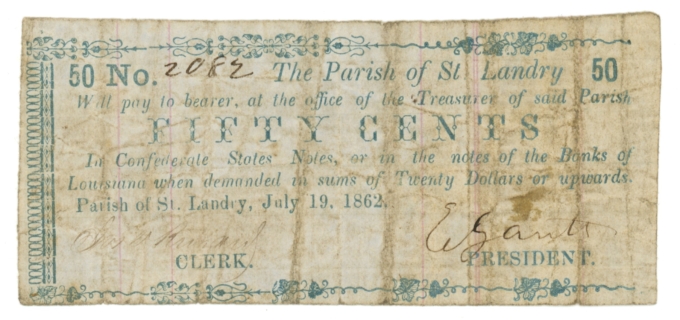 50 No. 2082 The Parish of St. Landry 50
Will pay to bearer, at the office of the Treasurer of said Parish
FIFTY CENTS
In Confederate States' Notes, or in the notes of the Banks of
Louisiana when demanded in sums of Twenty Dollars or upwards.
Parish of St. Landry, July 19, 1862.
CLERK. PRESIDENT.